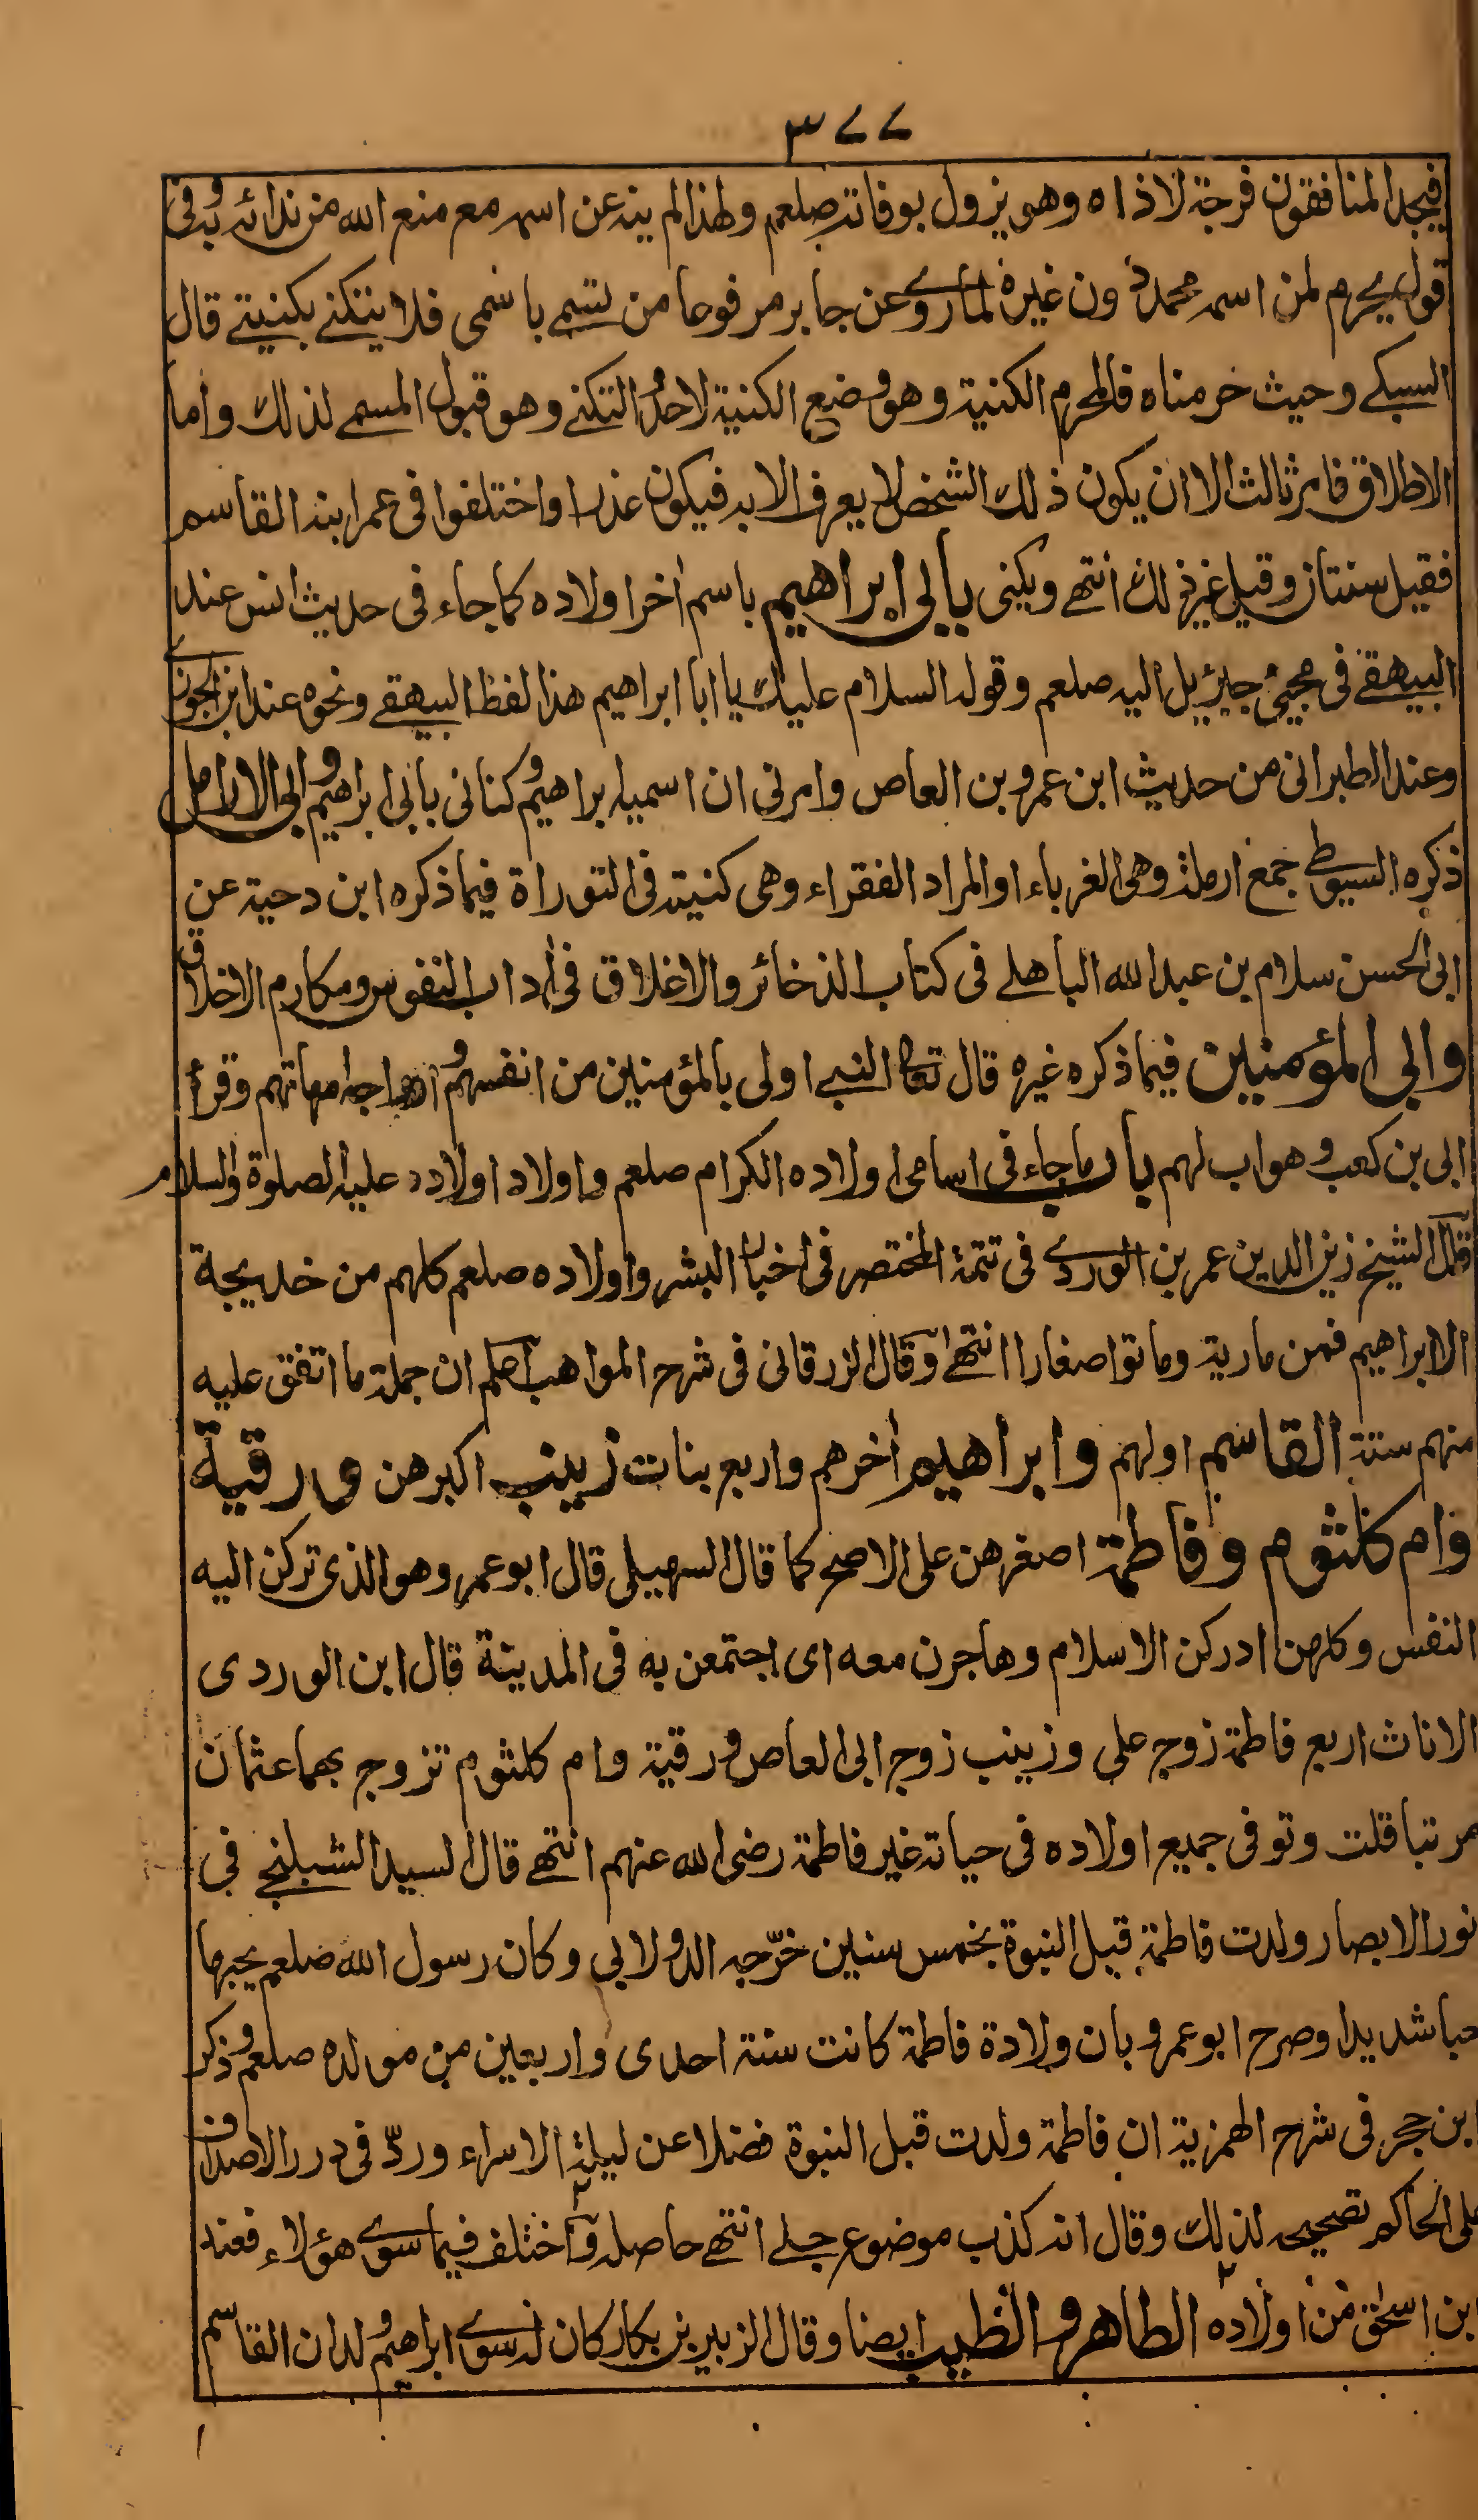 ٣٧٧
فيجد المنافقون فرجة لاذاه وهو يزول بوفاته صلعم ولهذا لم ينه عن اسمه مع منع الله من ندائه به وفى
قول يحرم لمن اسمه محمد دون غيره لما روى عن جابر مرفوعا من تسمى باسمى فلا يتكنى بكنيتى قال
السبكى وحيث حرمناه فالمحرم الكنية وهو وضع الكنية لاحد والتكنى وهو قبول المسمى لذلك واما
الاطلاق فامر ثالث الا ان يكون ذلك الشخص لا يعرف الا به فيكون عذرا واختلفوا فى عمر ابنه القاسم
فقيل سنتان وقيل غير ذلك انتهى ويكنى بابى ابراهيم باسم آخر اولاده كما جاء فى حديث انس عند
البيهقى فى مجيئ جبرئيل اليه صلعم وقوله السلام عليك يا ابا ابراهيم هذا لفظ البيهقى ونحوه عند ابن الجوزى
وعند الطبرانى من حديث ابن عمرو بن العاص وامرنى ان اسميه ابراهيم وكنانى بابى ابراهيم وابى الارامل
ذكره السيوطى جمع ارملة وهى الغرباء او المراد الفقراء وهى كنيته فى التوراة فيما ذكره ابن دحية عن
ابى الحسن سلام بن عبد الله الباهلى فى كتاب الذخائر والاغلاق فى آداب النفوس ومكارم الاخلاق
وابى المؤمنين فيما ذكره غيره قال تعالى النبى اولى بالمؤمنين من انفسهم وازواجه امهاتهم وقرأ
ابى بن كعب وهو اب لهم باب ما جاء فى اسامى اولاده الكرام صلعم واولاد اولاده عليه الصلوة والسلام
قال الشيخ زين الدين عمر بن الوردى فى تتمة المختصر فى اخبار البشر واولاده صلعم كلهم من خديجة
الا ابراهيم فمن مارية وماتوا صغارا انتهى وقال الزرقانى فى شرح المواهب اعلم ان جملة ما اتفق عليه
منهم ستة القاسم اولهم وابراهيم آخرهم واربع بنات زينب اكبرهن ورقية
وام كلثوم وفاطمة اصغرهن على الاصح كما قال السهيلى قال ابو عمر وهو الذى تركن اليه
النفس وكلهن ادركن الاسلام وهاجرن معه اى اجتمعن به فى المدينة قال ابن الوردى
الاناث اربع فاطمة زوج على وزينب زوج ابى العاص ورقية وام كلثوم تزوج بهما عثمان
مرتبا قلت وتوفى جميع اولاده فى حياته غير فاطمة رضى الله عنهم انتهى قال السيد الشبلنجى فى
نور الابصار ولدت فاطمة قبل النبوة بخمس سنين خرّجه الدولابى وكان رسول الله صلعم يحبها
حبا شديدا وصرح ابو عمرو بان ولادة فاطمة كانت سنة احدى واربعين من مولده صلعم وذكر
ابن حجر فى شرح الهمزية ان فاطمة ولدت قبل النبوة فضلا عن ليلة الاسراء وردّ فى درر الاصداف
على الحاكم تصحيحه لذلك وقال انه كذب موضوع جلى انتهى حاصله واختلف فيما سوى هؤلاء فعند
ابن اسحٰق من اولاده الطاهر والطيب ايضا وقال الزبير بن بكار كان له سوى ابراهيم ولدان القاسم